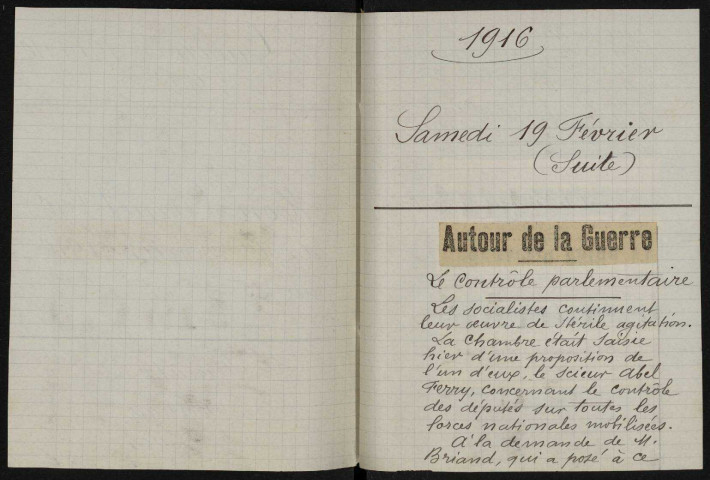 1916
Samedi 19 Février
(Suite)
Autour de la Guerre
Le Contrôle parlementaire
Les socialistes continuent
leur œuvre de stérile agitation.
La Chambre était saisie
hier d'une proposition de
l'un d'eux, le scieur Abel
Ferry, concernant le contrôle
des députés sur toutes les
forces nationales mobilisées.
A la demande de M.
Briand, qui a posé à ce